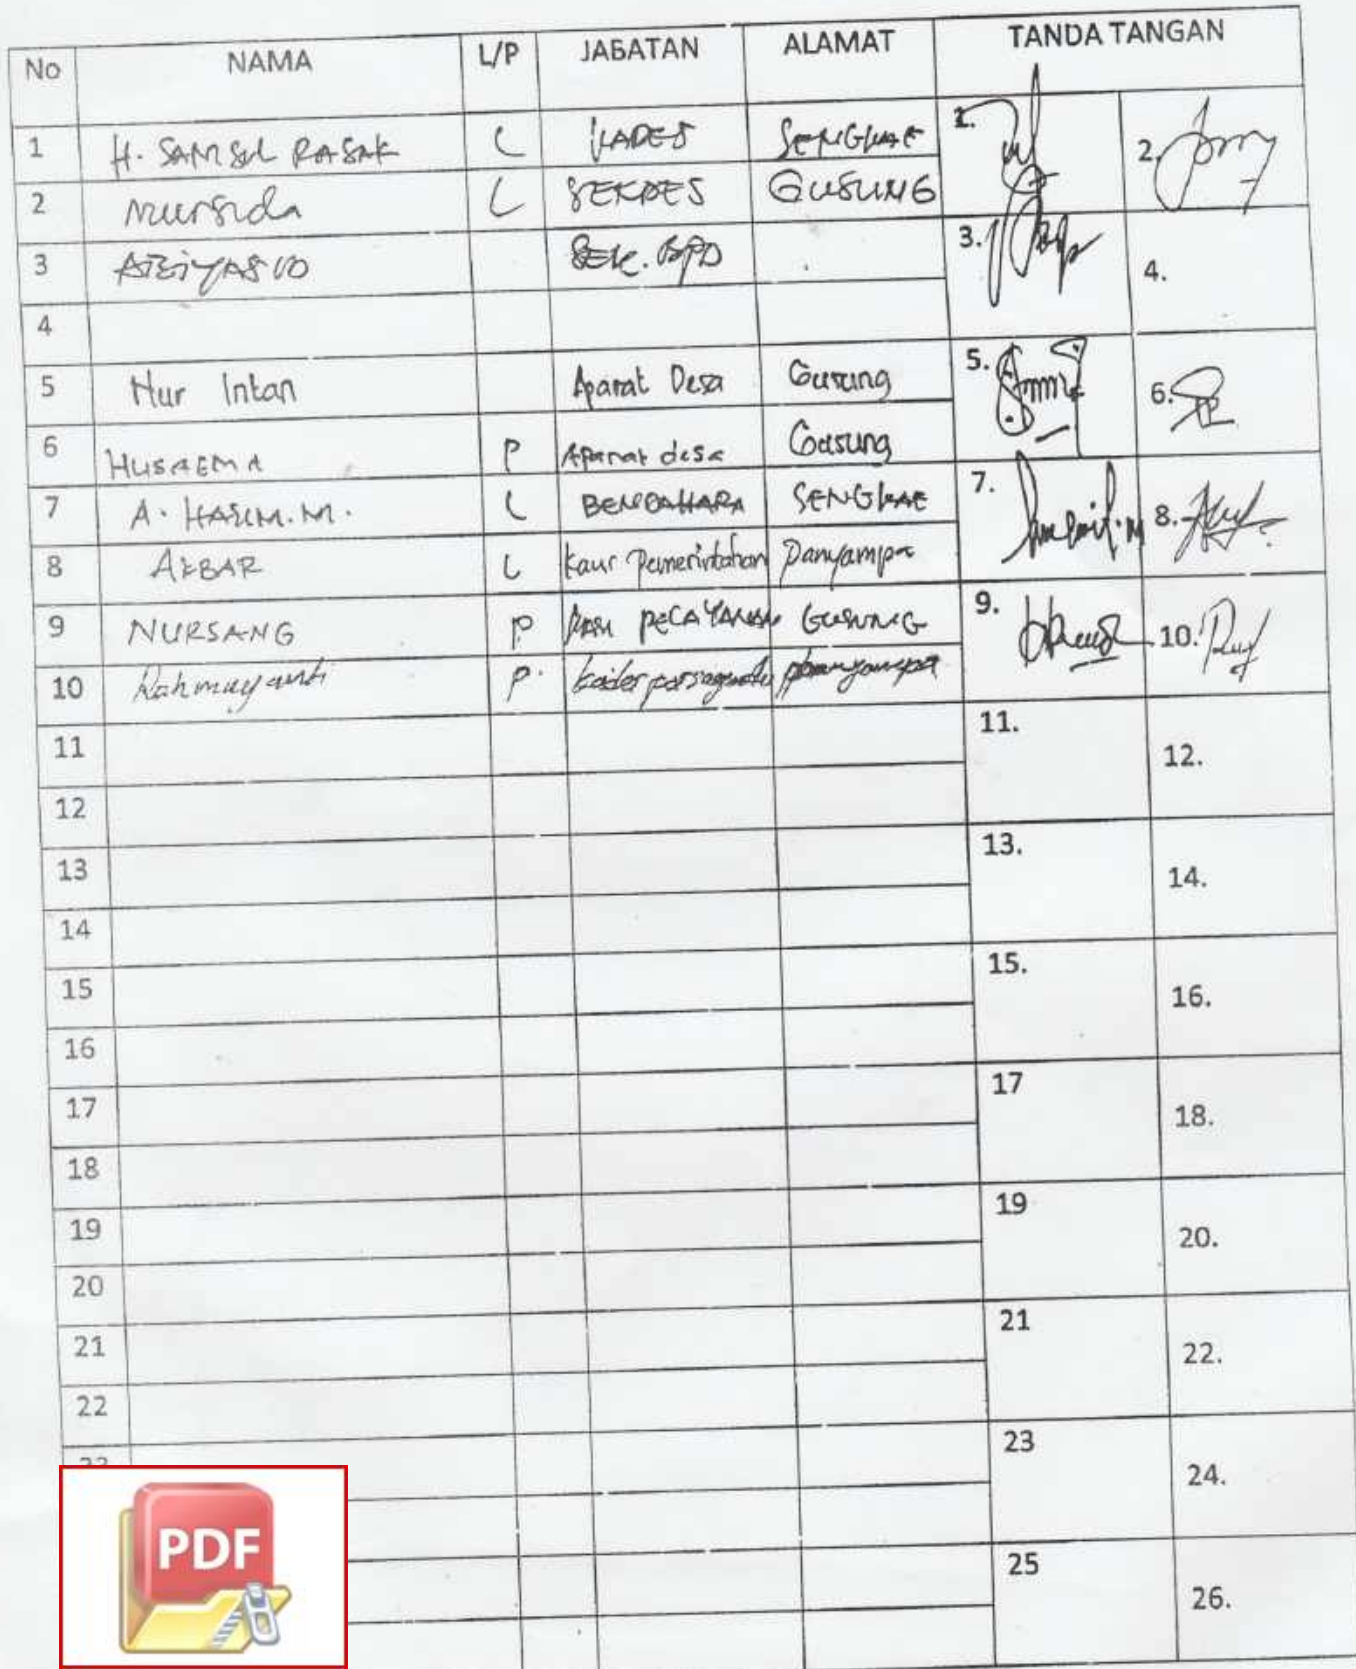 No NAMA L/P JABATAN ALAMAT TANDA TANGAN
1 H. SAMSUL RASAK L KADES SENGKAE 1. 2.
2 Mursida L SEKDES GUSUNG
3 SEK. BPD 3. 4.
4
5 Nur Intan Aparat Desa Gusung 5. 6.
6 HUSAEMA P Aparat desa Gusung
7 A. HASIM. M. L BENDAHARA SENGKAE 7. 8.
8 AKBAR L Kaur Pemerintahan Panyampa
9 NURSANG P PELAYANAN GUSUNG 9. 10.
10 Rahmayanti P. kader
11 11. 12.
12
13 13. 14.
14
15 15. 16.
16
17 17 18.
18
19 19 20.
20
21 21 22.
22
23 23 24.
25 26.
PDF